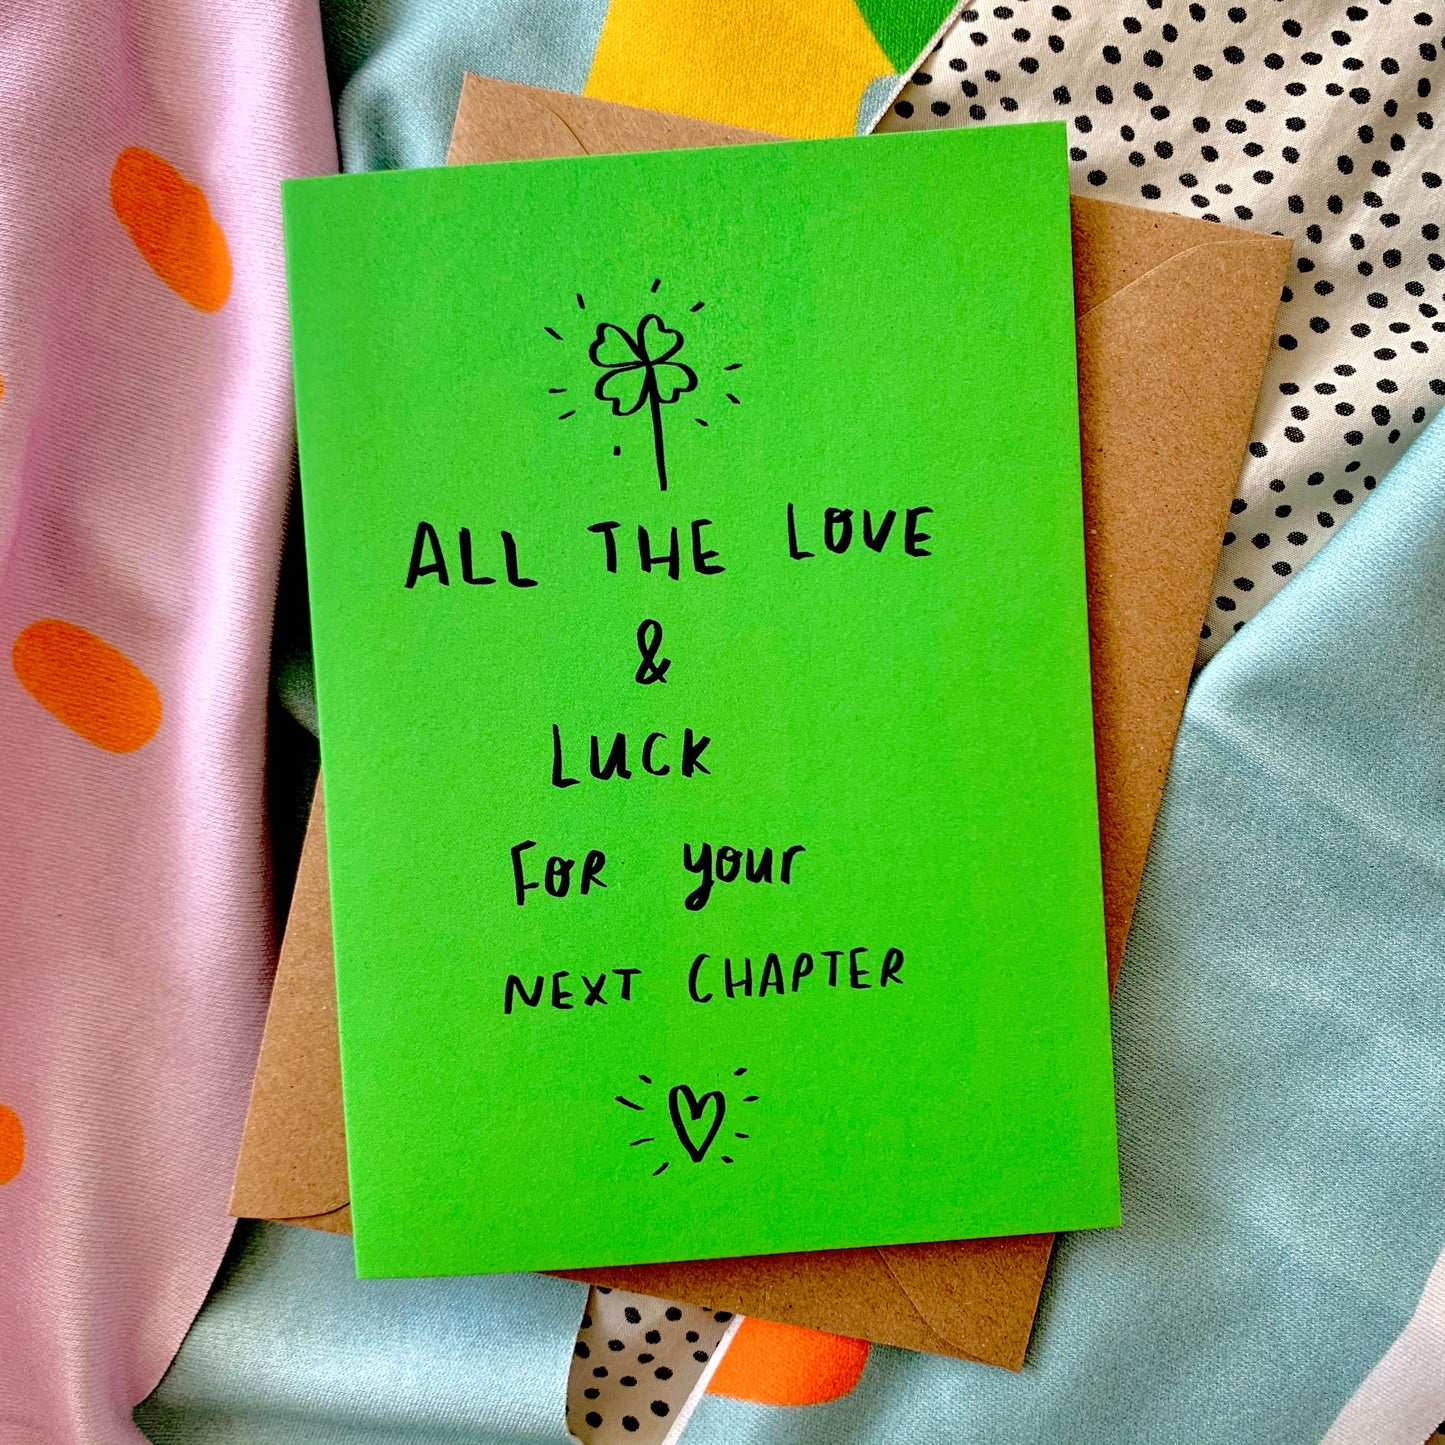 ALL THE LOVE
&
LUCK
FOR your
NEXT CHAPTER